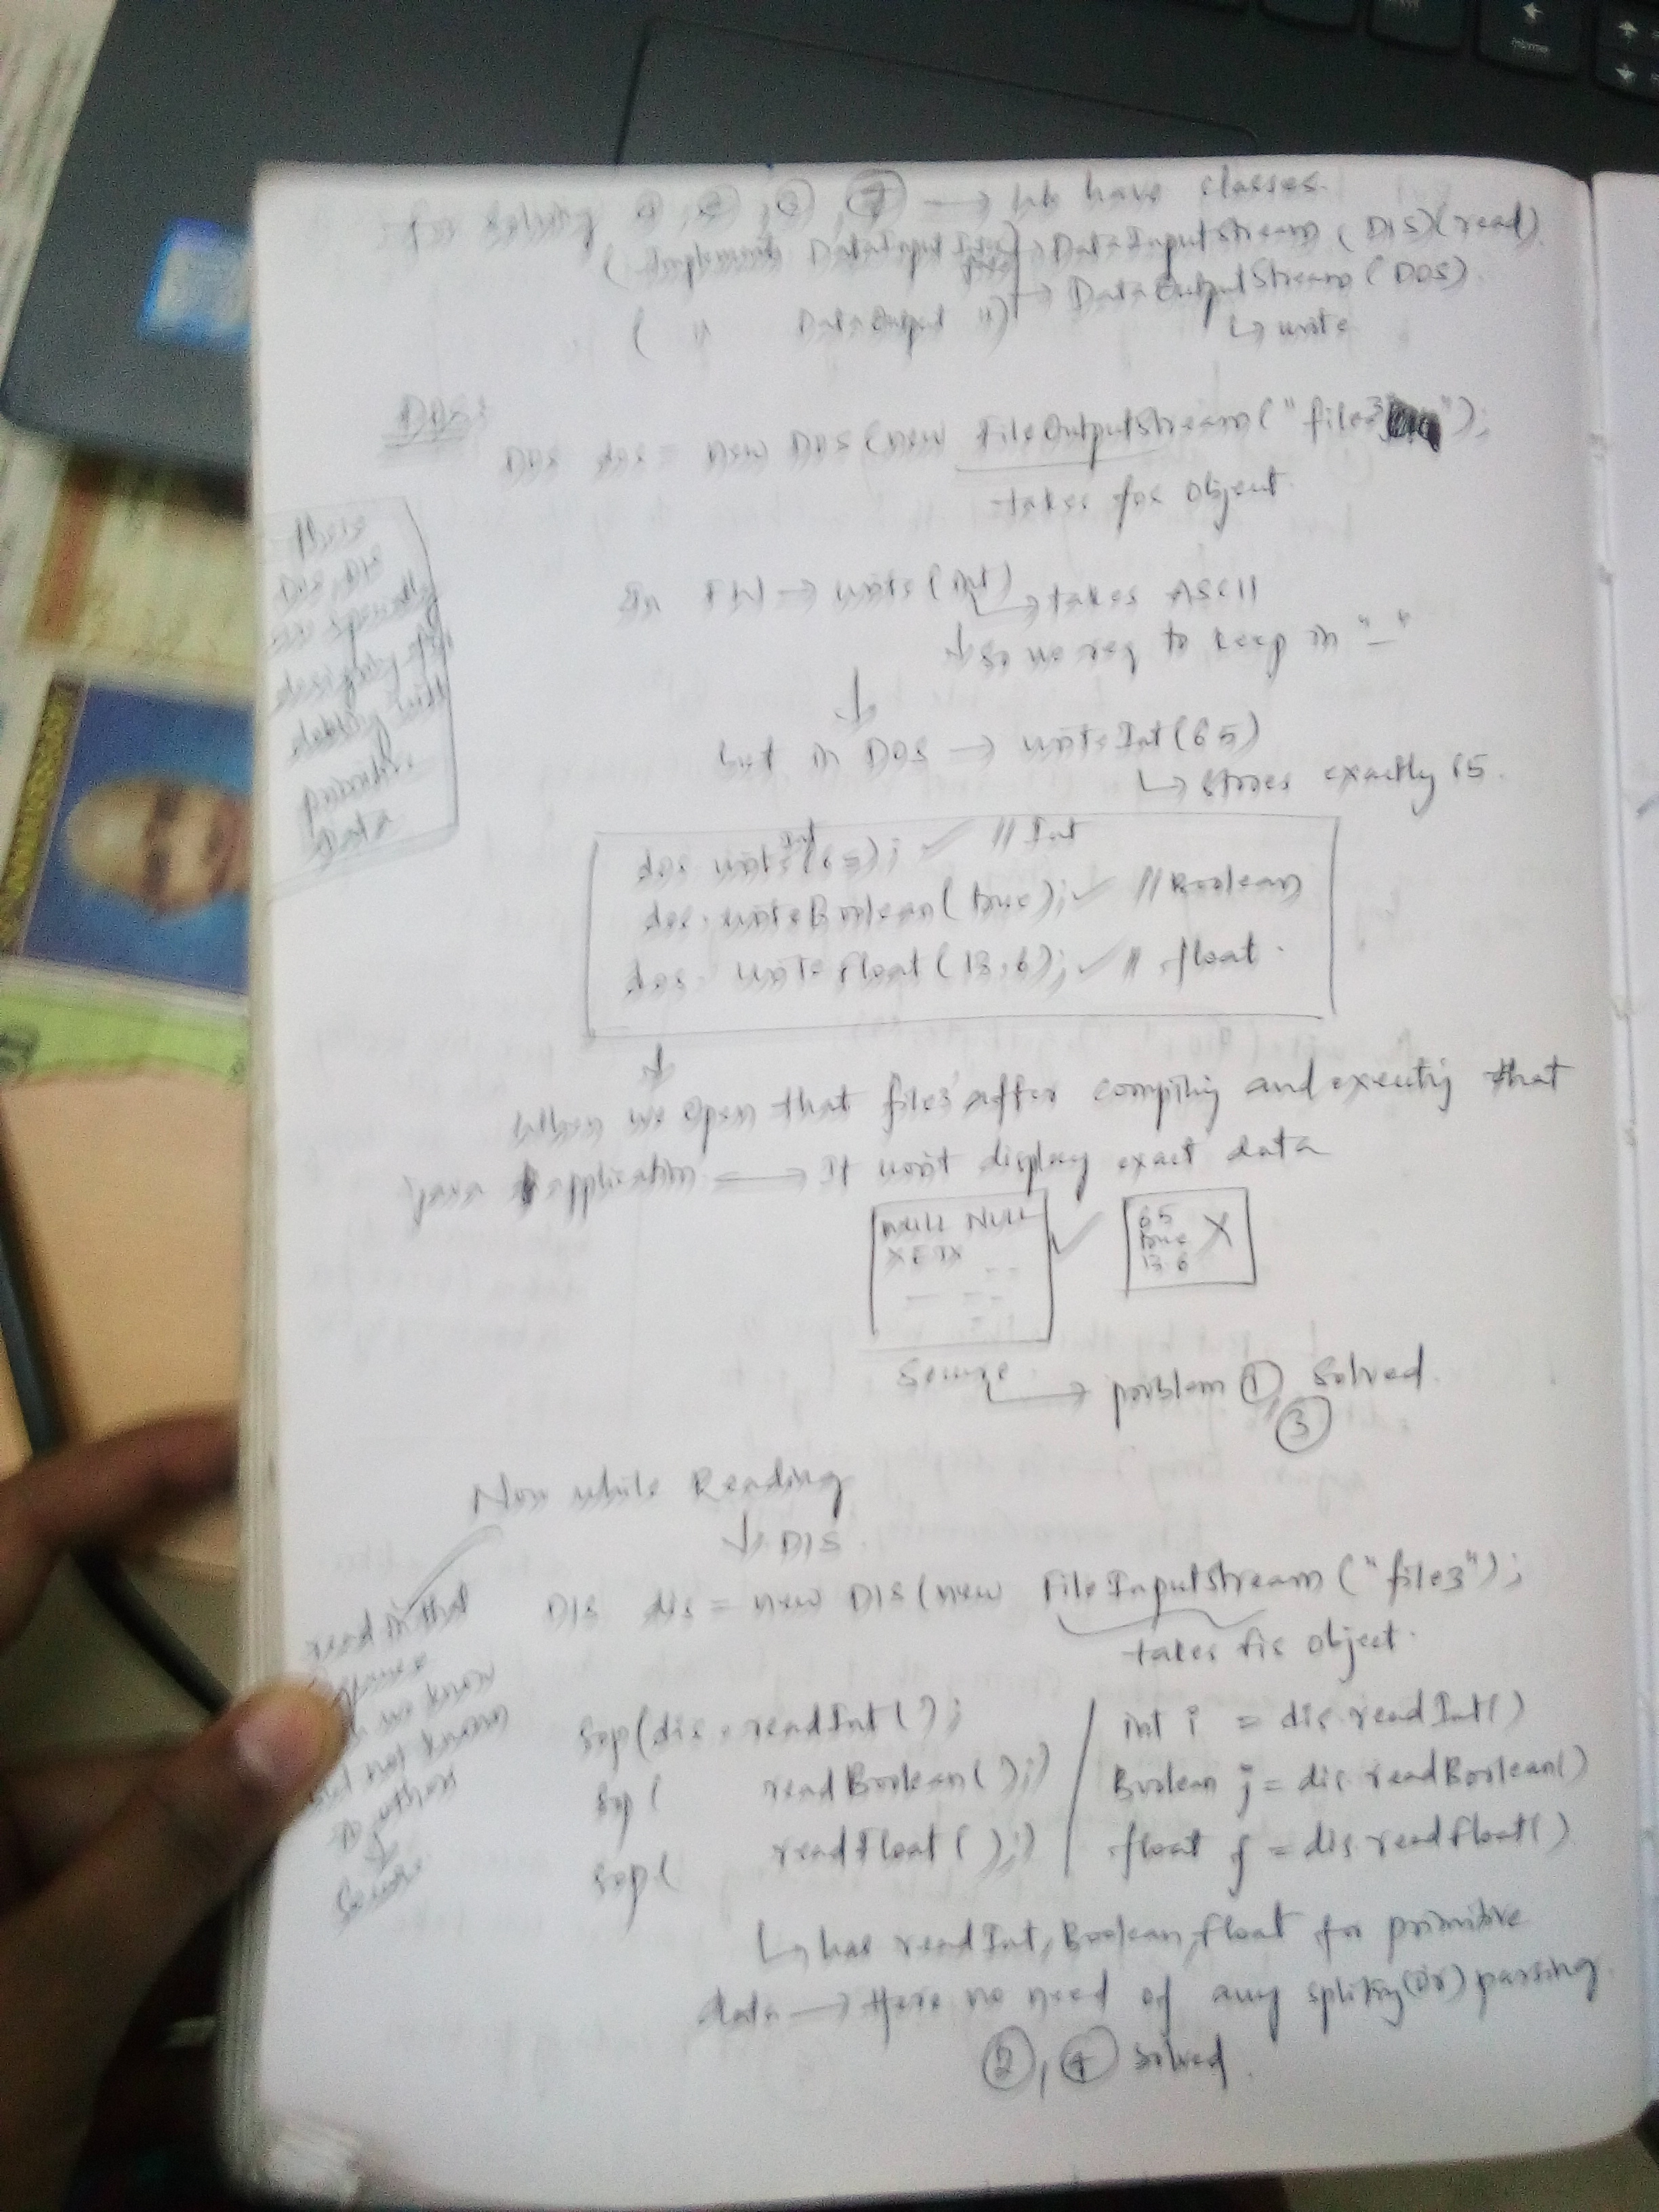 for solving ①, ②, ③, ④ → We have classes.
(Implements DataInput Interface) → DataInputStream (DIS)(read)
( " DataOutput ") → DataOutputStream (DOS)
↳ write
DOS:
DOS dos = new DOS (new FileOutputStream("file3");
takes fos object
In FW → write(int) → takes ASCII
↓ so we req to keep in "_"
↓
but in DOS → writeInt(65)
↳ stores exactly 65.
These
DOS, DIS
are specially
designed
dealing with
primitive
Data
dos.writeInt(65); ✓ // Int
dos.writeBoolean(true); ✓ // Boolean
dos.writeFloat(13.6); ✓ // float.
↓
When we open that file3 after compiling and executing that
java application → It won't display exact data
NULL NULL
X ETX
✓
65
true
13.6
X
Secure → problem ①, solved.
③
Now while Reading
↓ DIS.
DIS dis = new DIS(new FileInputStream("file3");
takes fis object.
read in that
we know
not known
to others
↓
Secure
Sop(dis.readInt();
Sop( readBoolean();)
Sop( readFloat();)
int i = dis.readInt()
Boolean j = dis.readBoolean()
float f = dis.readFloat()
↳ has readInt, Boolean, float for primitive
data → Here no need of any spliting (or) parsing.
②, ④ solved.
Home